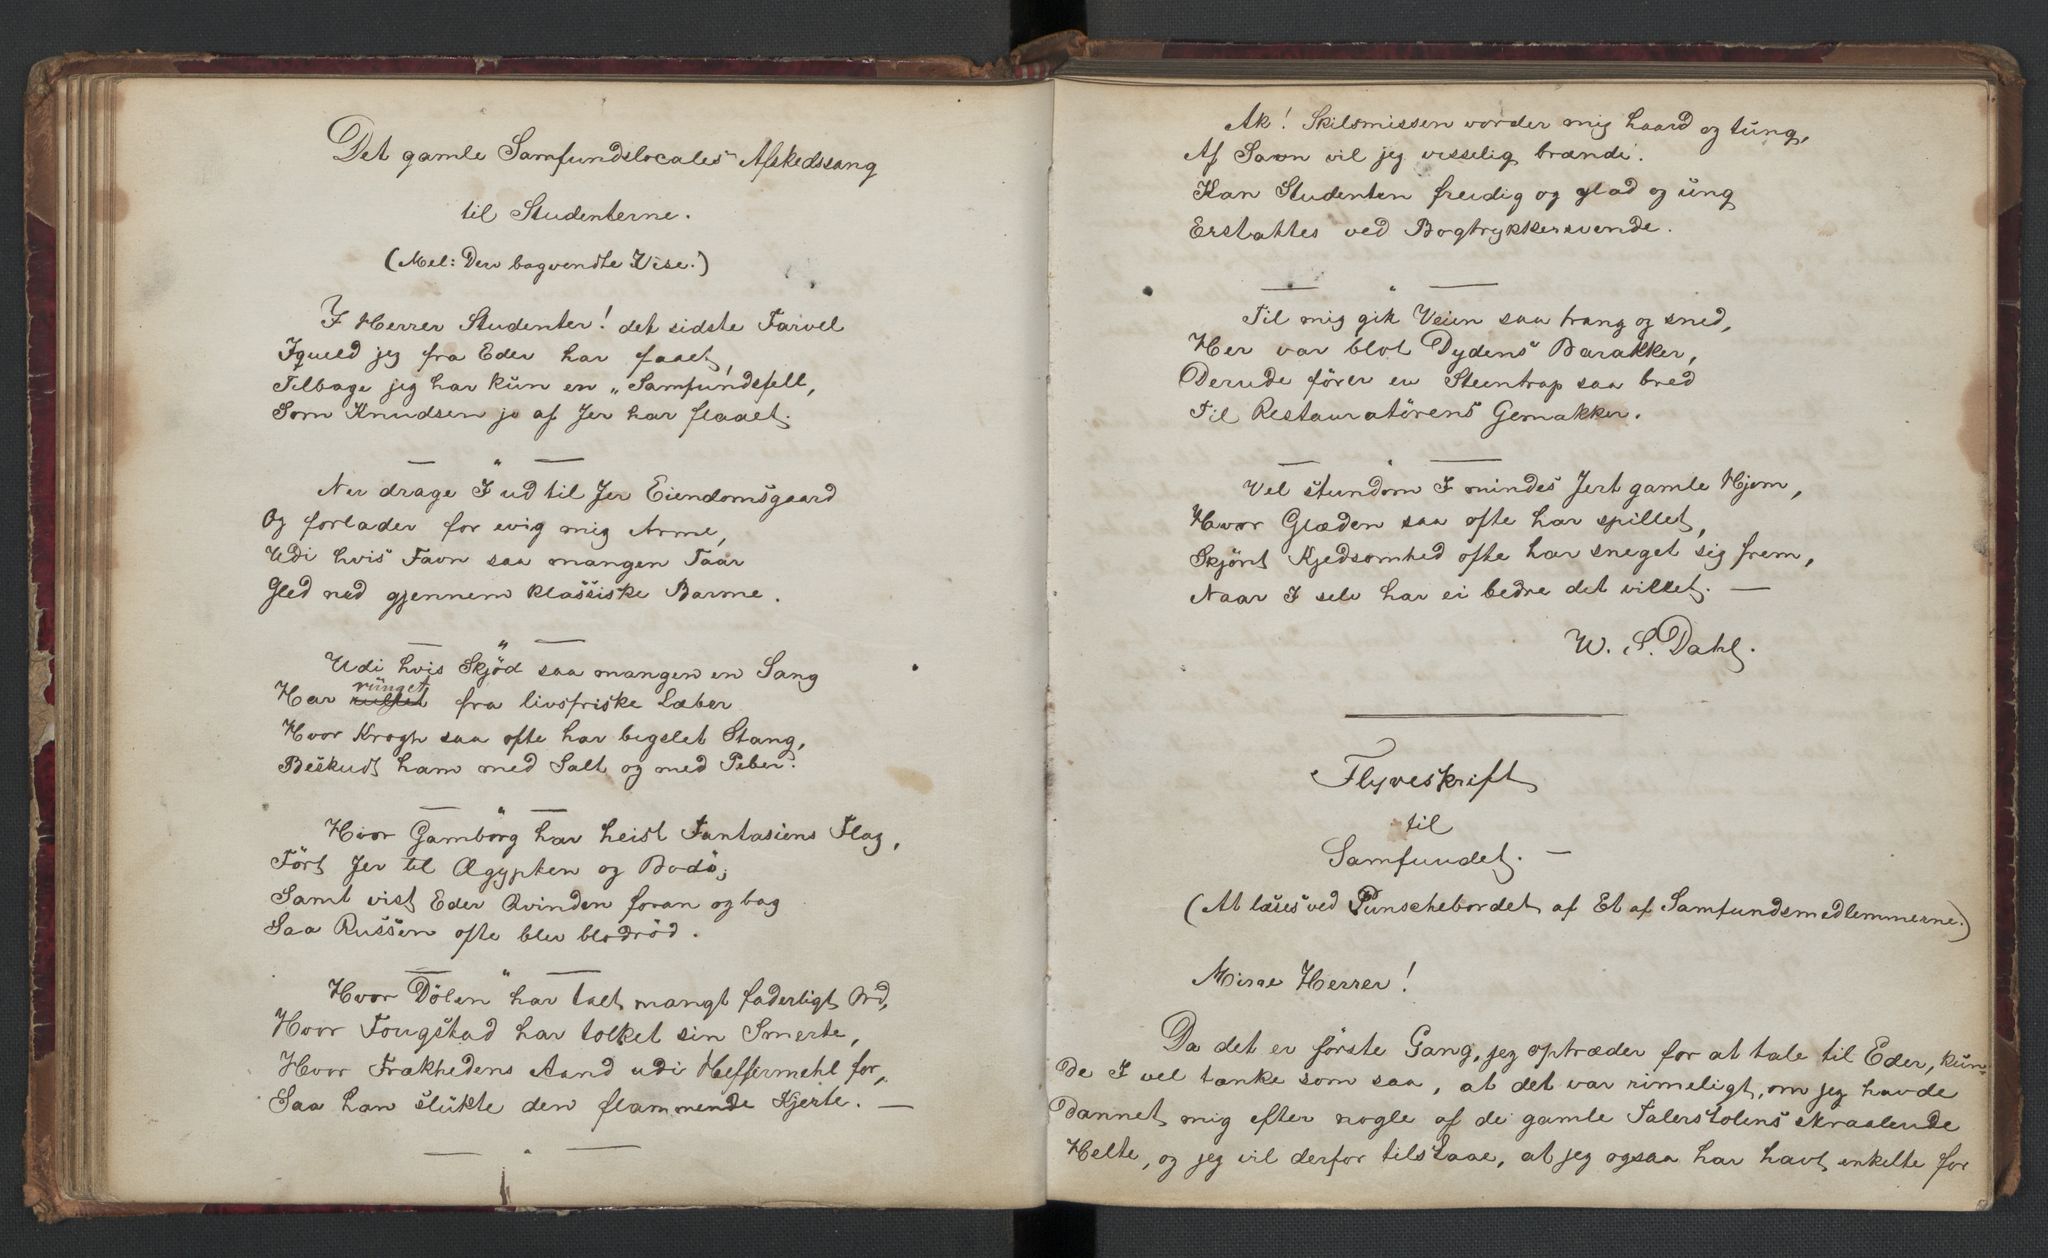 Det gamle Samfundslocales Afskedssang
til Studenterne.
(Mel: Den bagvendte Vise.)
I Herrer Studenter! det sidste Farvel
Iqveld jeg fra Eder har faaet,
Tilbage jeg har kun en „Samfundsfell,
Som Knudsen jo af Jer har flaaet.
Nu drage I ud til Jer Eiendomsgaard
Og forlader for evig mig Arme,
Udi hvis Favn saa mangen Taar
Gled ned gjennem klassiske Barme.
Udi hvis Skjöd saa mangen en Sang
Har runget fra livsfriske Læber
Hvor Krogh saa ofte har begslet Stang,
Beskudt ham med Salt og med Peber.
Hvor Gamborg har heist Fantasiens Flag,
Fört Jer til Ægypten og Bodö;
Samt vist Eder Qvinden foran og bag
Saa Russen ofte blev blodröd.
Hvor Dölen har talt mangt faderligt Ord,
Hvor Fougstad har tolket sin Smerte,
Hvor Frækhedens Aand udi Heffermehl for,
Saa han slukte den flammende Kjerte. —
Ak! Skilsmissen vorder mig haard og tung,
Af Savn vil jeg visselig brænde.
Kan Studenten freidig og glad og ung
Erstattes ved Bogtrykkersvende.
Til mig gik Veien saa trang og sned,
Her var blot Dydens Barakker,
Derude förer en Steentrap saa bred
Til Restauratörens Gemakker.
Vel stundom I mindes Jert gamle Hjem,
Hvor Glæden saa ofte har spillet,
Skjönt Kjedsomhed ofte har sneget sig frem,
Naar I selv har ei bedre det villet. —
W. S. Dahl.
Flyveskrift
til
Samfundet. —
(At læses ved Punschebordet af Et af Samfundsmedlemmerne.)
Mine Herrer!
Da det er förste Gang, jeg optræder for at tale til Eder, kun-
de I vel tænke som saa, at det var rimeligt, om jeg havde
dannet mig efter nogle af de gamle Talerstolens skraalende
Helte, og jeg vil derfor tilstaae, at jeg ogsaa har havt enkelte for